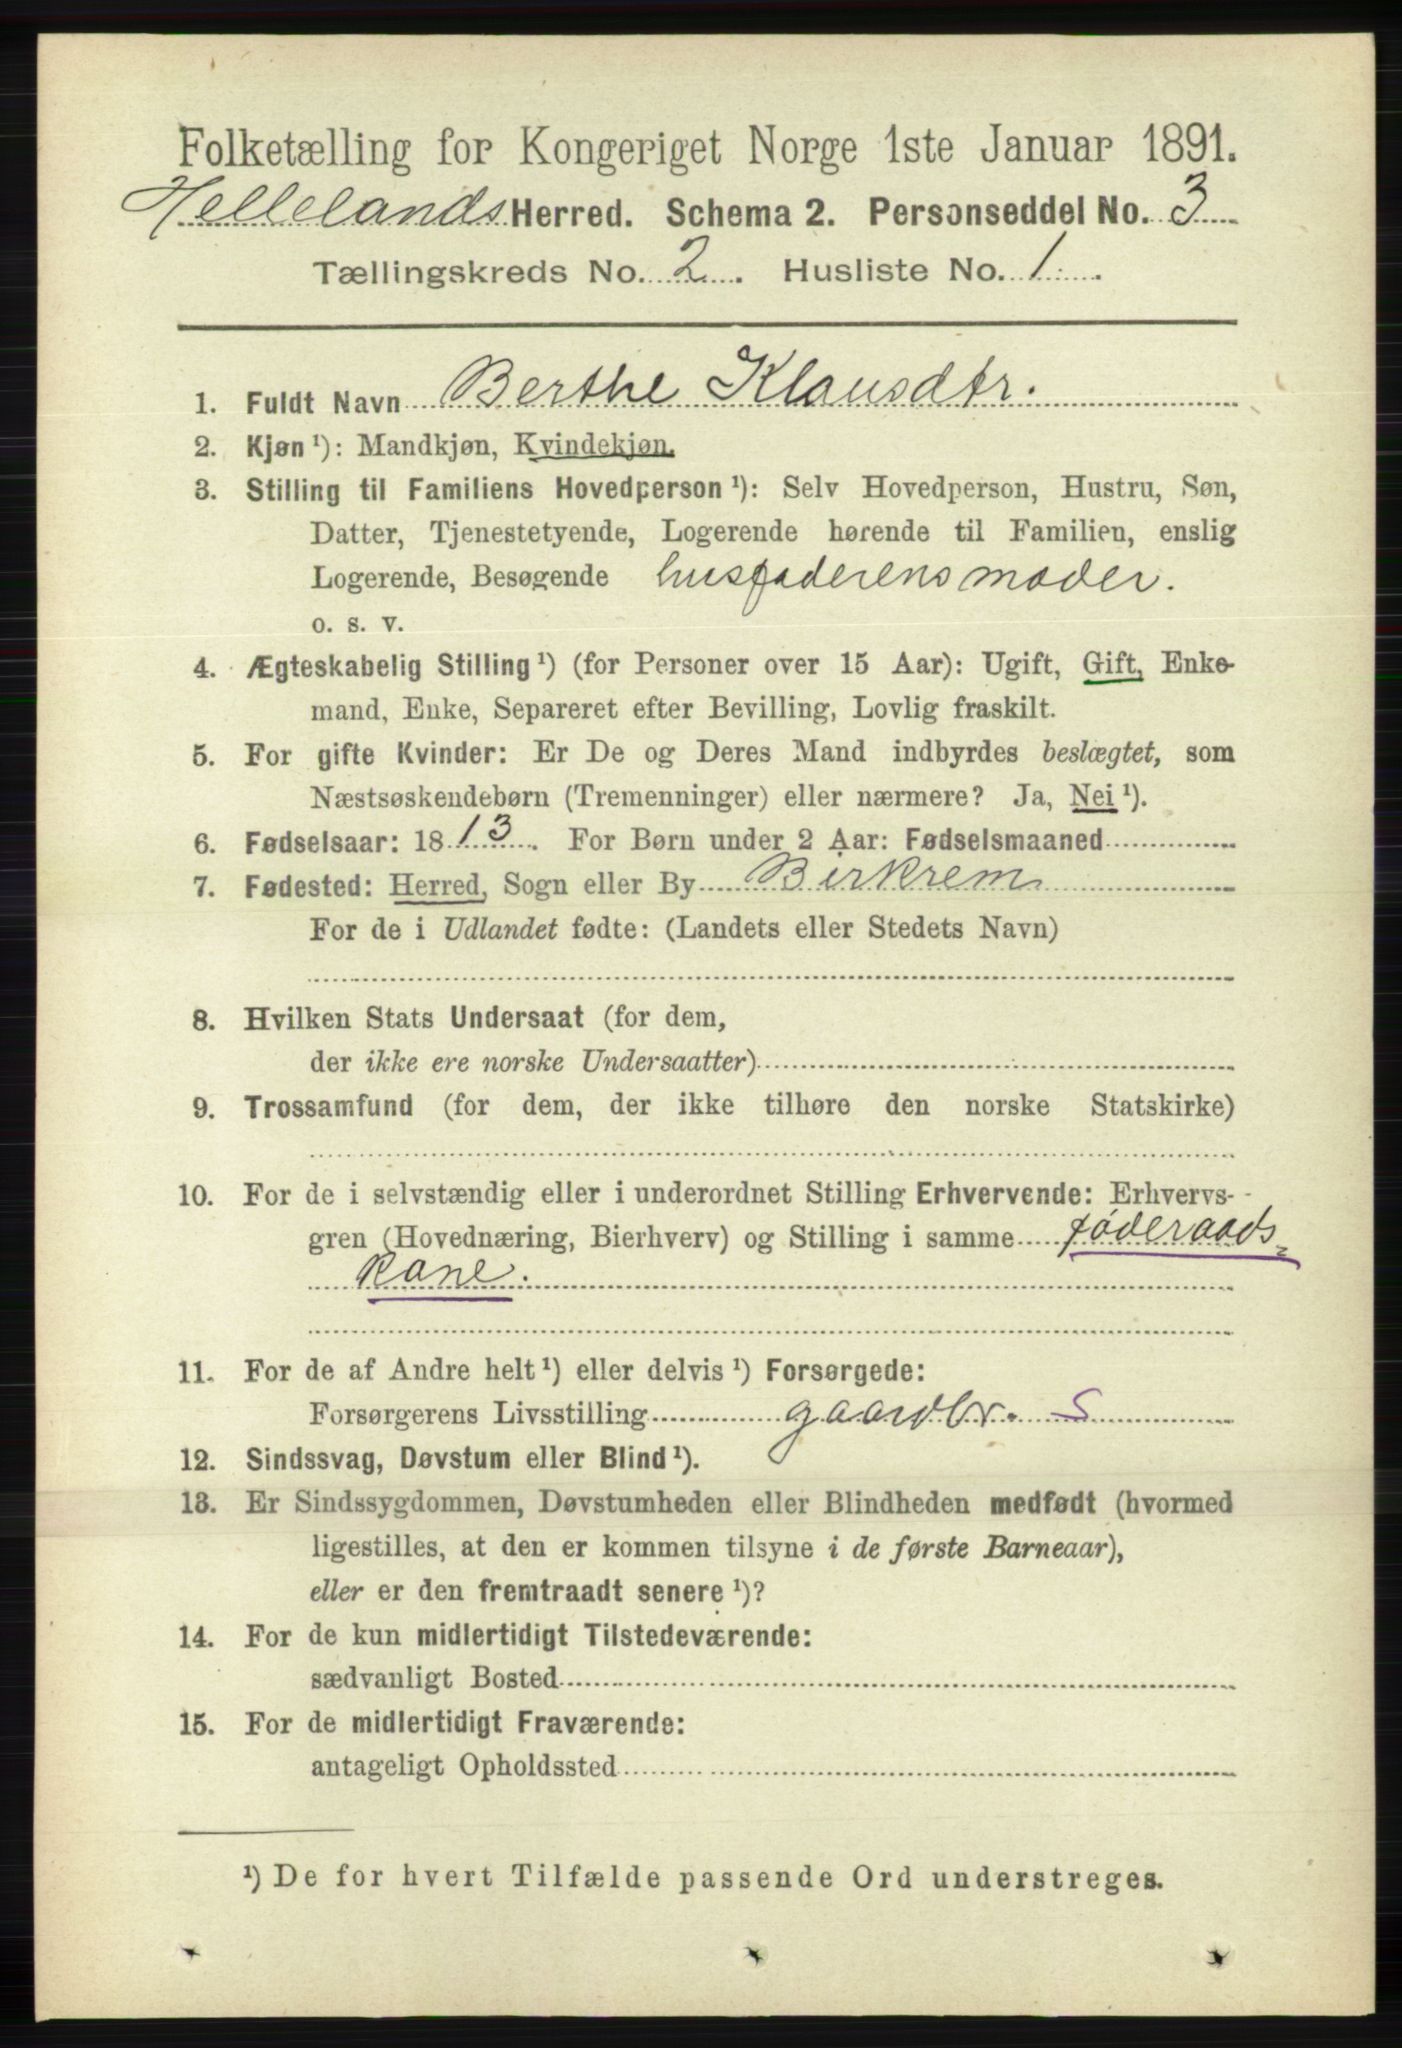 Folketælling for Kongeriget Norge 1ste Januar 1891.
Hellelands Herred. Schema 2. Personseddel No. 3
Tællingskreds No. 2. Husliste No. 1.
1. Fuldt Navn Berthe Klausdtr.
2. Kjøn ¹): Mandkjøn, Kvindekjøn.
3. Stilling til Familiens Hovedperson ¹): Selv Hovedperson, Hustru, Søn,
Datter, Tjenestetyende, Logerende hørende til Familien, enslig
Logerende, Besøgende husfaderens moder.
o. s. v.
4. Ægteskabelig Stilling ¹) (for Personer over 15 Aar): Ugift, Gift, Enke-
mand, Enke, Separeret efter Bevilling, Lovlig fraskilt.
5. For gifte Kvinder: Er De og Deres Mand indbyrdes beslægtet, som
Næstsøskendebørn (Tremenninger) eller nærmere? Ja, Nei ¹).
6. Fødselsaar: 1813. For Børn under 2 Aar: Fødselsmaaned
7. Fødested: Herred, Sogn eller By Birkrem
For de i Udlandet fødte: (Landets eller Stedets Navn)
8. Hvilken Stats Undersaat (for dem,
der ikke ere norske Undersaatter)
9. Trossamfund (for dem, der ikke tilhøre den norske Statskirke)
10. For de i selvstændig eller i underordnet Stilling Erhvervende: Erhvervs-
gren (Hovednæring, Bierhverv) og Stilling i samme føderaads-
kone.
11. For de af Andre helt ¹) eller delvis ¹) Forsørgede:
Forsørgerens Livsstilling gaardbr. S
12. Sindssvag, Døvstum eller Blind ¹).
13. Er Sindssygdommen, Døvstumheden eller Blindheden medfødt (hvormed
ligestilles, at den er kommen tilsyne i de første Barneaar),
eller er den fremtraadt senere ¹)?
14. For de kun midlertidigt Tilstedeværende:
sædvanligt Bosted
15. For de midlertidigt Fraværende:
antageligt Opholdssted
¹) De for hvert Tilfælde passende Ord understreges.